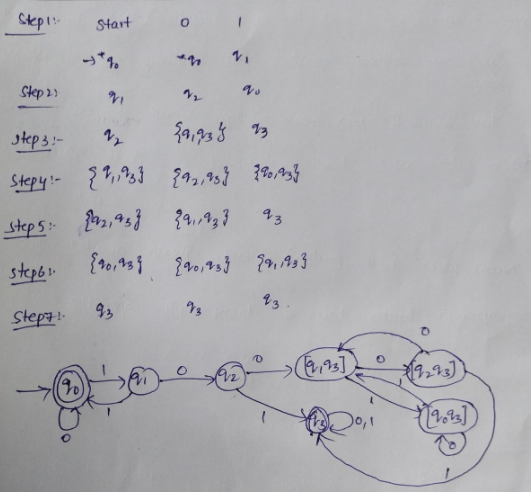 Step1:- Start 0 1
→*q0 *q0 q1
Step2:- q1 q2 q0
Step3:- q2 {q1,q3} q3
Step4:- {q1,q3} {q2,q3} {q0,q3}
Step5:- {q2,q3} {q1,q3} q3
Step6:- {q0,q3} {q0,q3} {q1,q3}
Step7:- q3 q3 q3.
0
q0 1 q1 0 q2 0 [q1q3] 0 [q2q3]
1 1 1 1 [q0q3]
0 q3 0,1 0
1